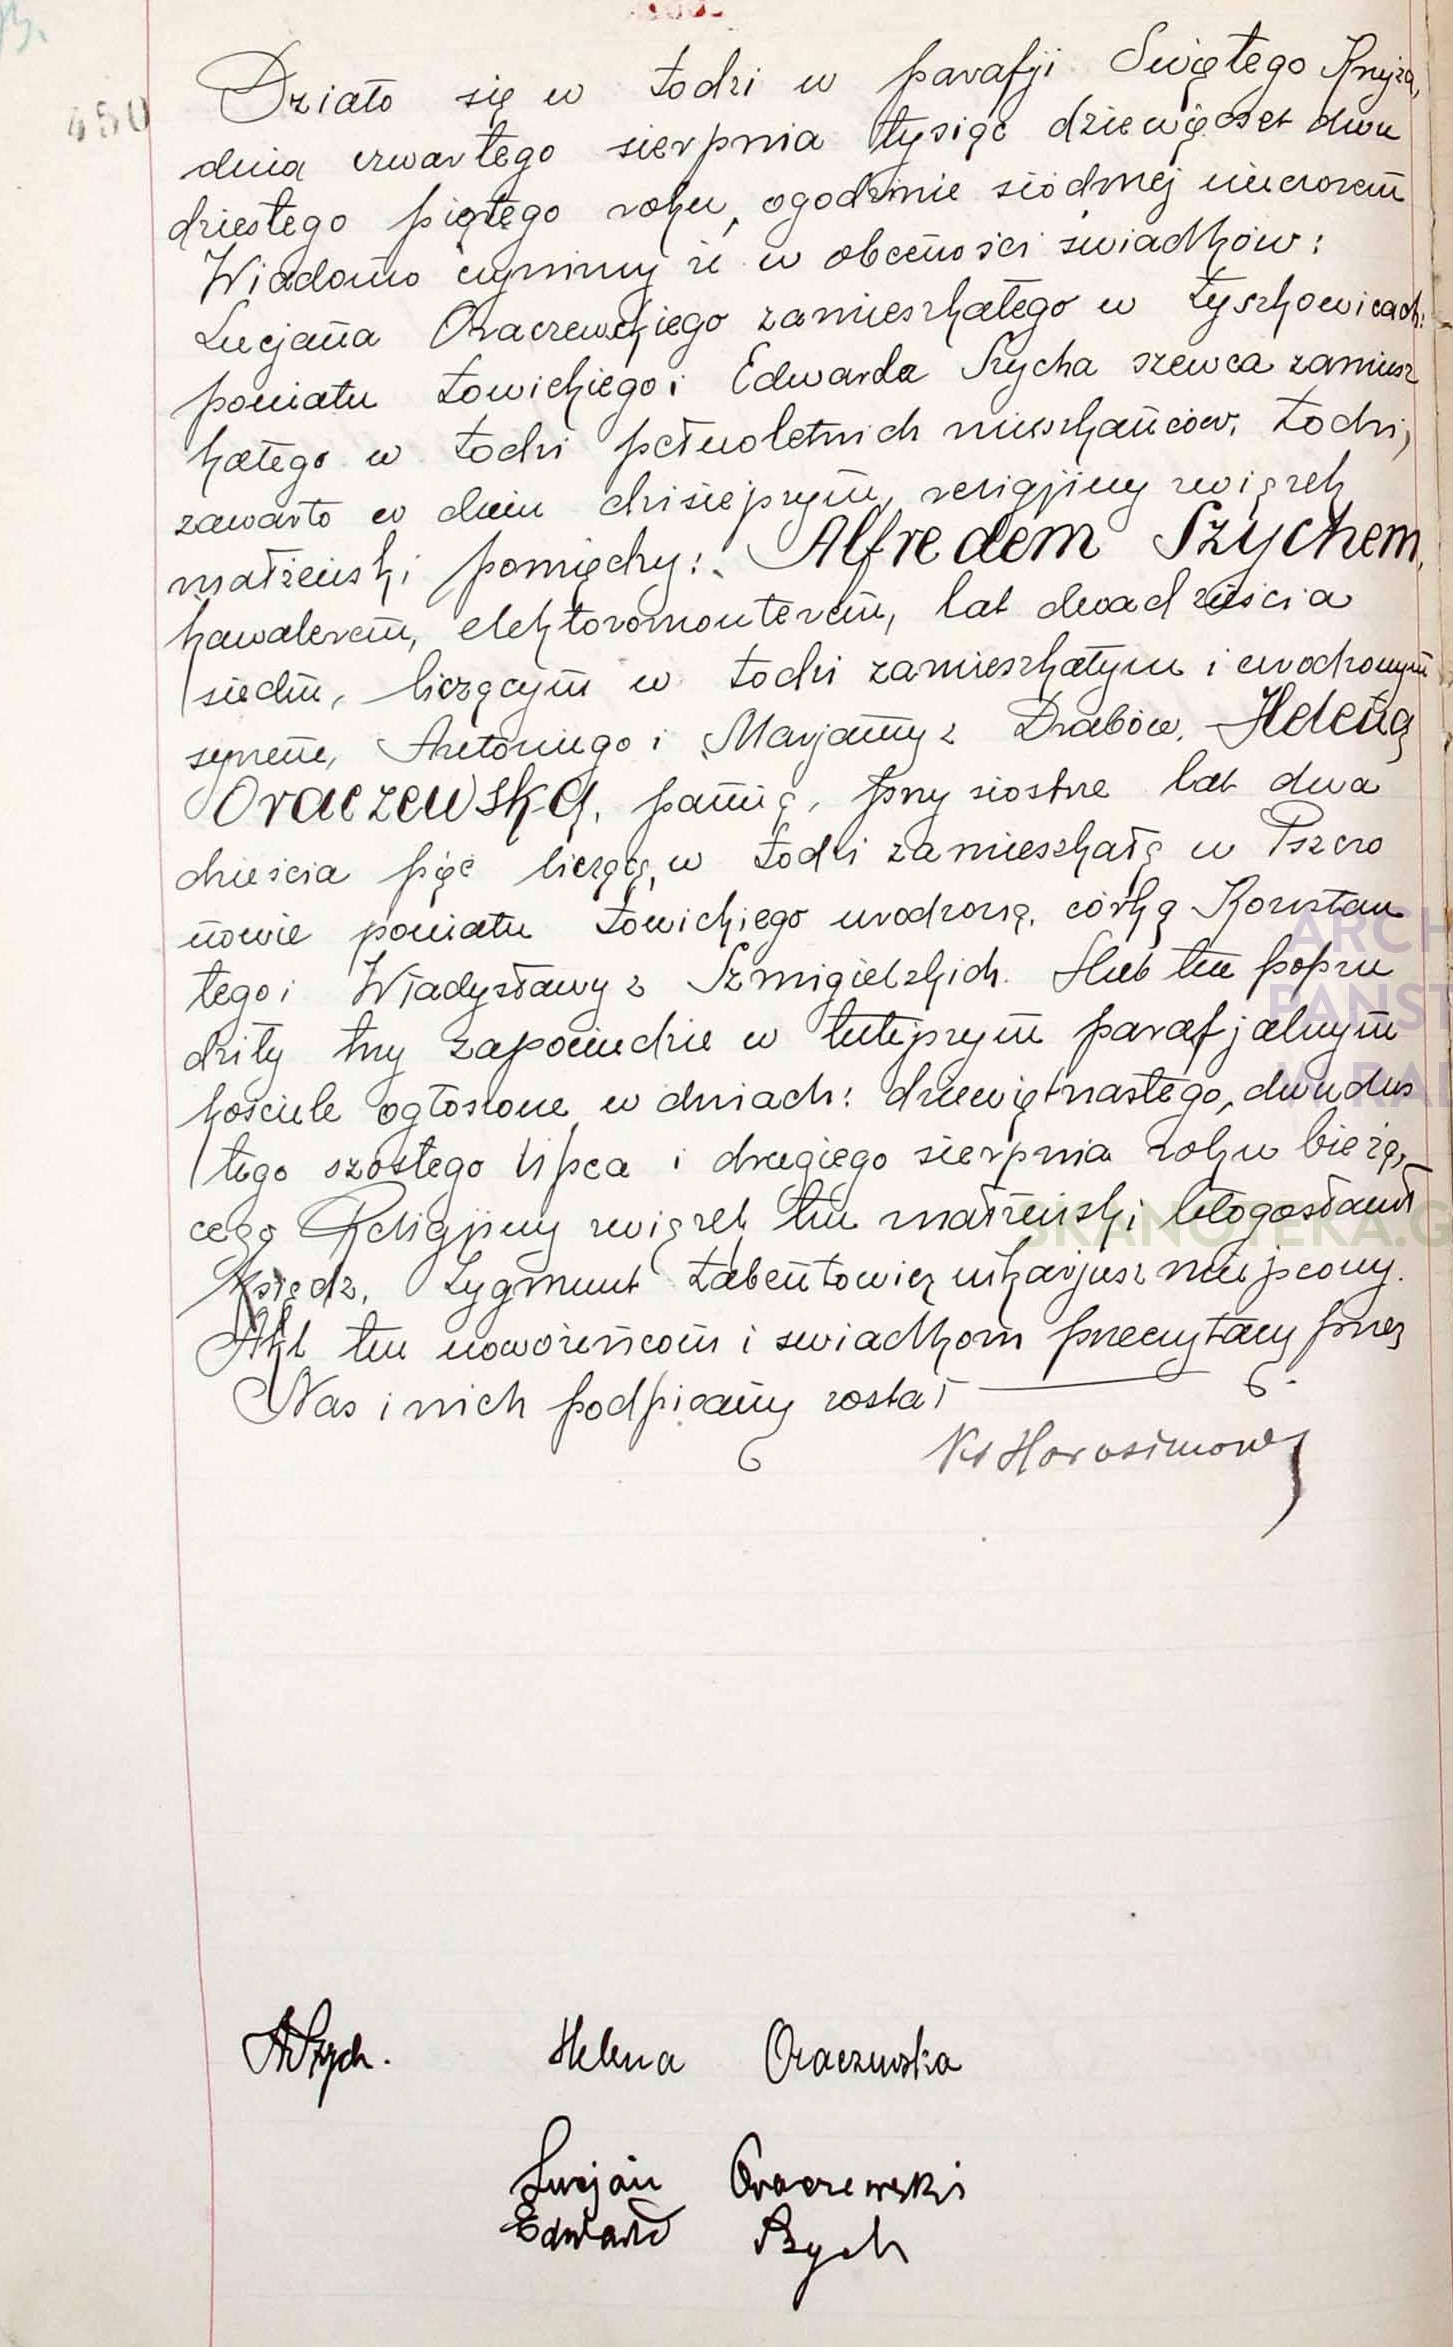 450
Działo się w Łodzi w parafji Świętego Krzyża,
dnia czwartego sierpnia tysiąc dziewięćset dwu
dziestego piątego roku, o godzinie siódmej wieczorem
Wiadomo czynimy że w obecności świadków:
Lucjana Oraczewskiego zamieszkałego w Łyszkowicach:
powiatu Łowickiego i Edwarda Szycha szewca zamiesz
kałego w Łodzi pełnoletnich mieszkańców, Łodzi,
zawarto w dniu dzisiejszym, religijny związek
małżeński pomiędzy: Alfredem Szychem,
kawalerem, elektoromonterem, lat dwadzieścia
siedm, liczącym w Łodzi zamieszkałym i urodzonym
synem, Antoniego i Marjanny z Drabów, Heleną
Oraczewską, panną, przy siostrze lat dwa
dzieścia pięć liczącą, w Łodzi zamieszkałą w Pszczo
nowie powiatu Łowickiego urodzoną, córką Konstan
tego i Władysławy z Szmigielskich. Ślub ten poprze
dziły trzy zapowiedzie w tutejszym parafjalnym
kościele ogłoszone w dniach: dziewiętnastego, dwudzies
tego szóstego lipca i drugiego sierpnia roku bieżą,
cego Religijny związek ten małżeński błogosławił
Ksiądz, Zygmunt Łabentowicz wikarjusz miejscowy.
Akt ten nowożeńcom i świadkom przeczytany przez
Nas i nich podpisany został
Ks Harasimowicz
ASzych. Helena Oraczewska
Lucjan Oraczewski
Edward Szych
SKANOTEKA.G